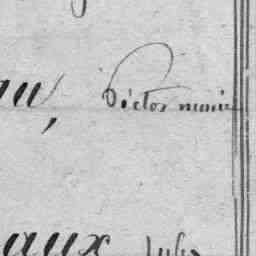 au, Victor marie
aux Jules